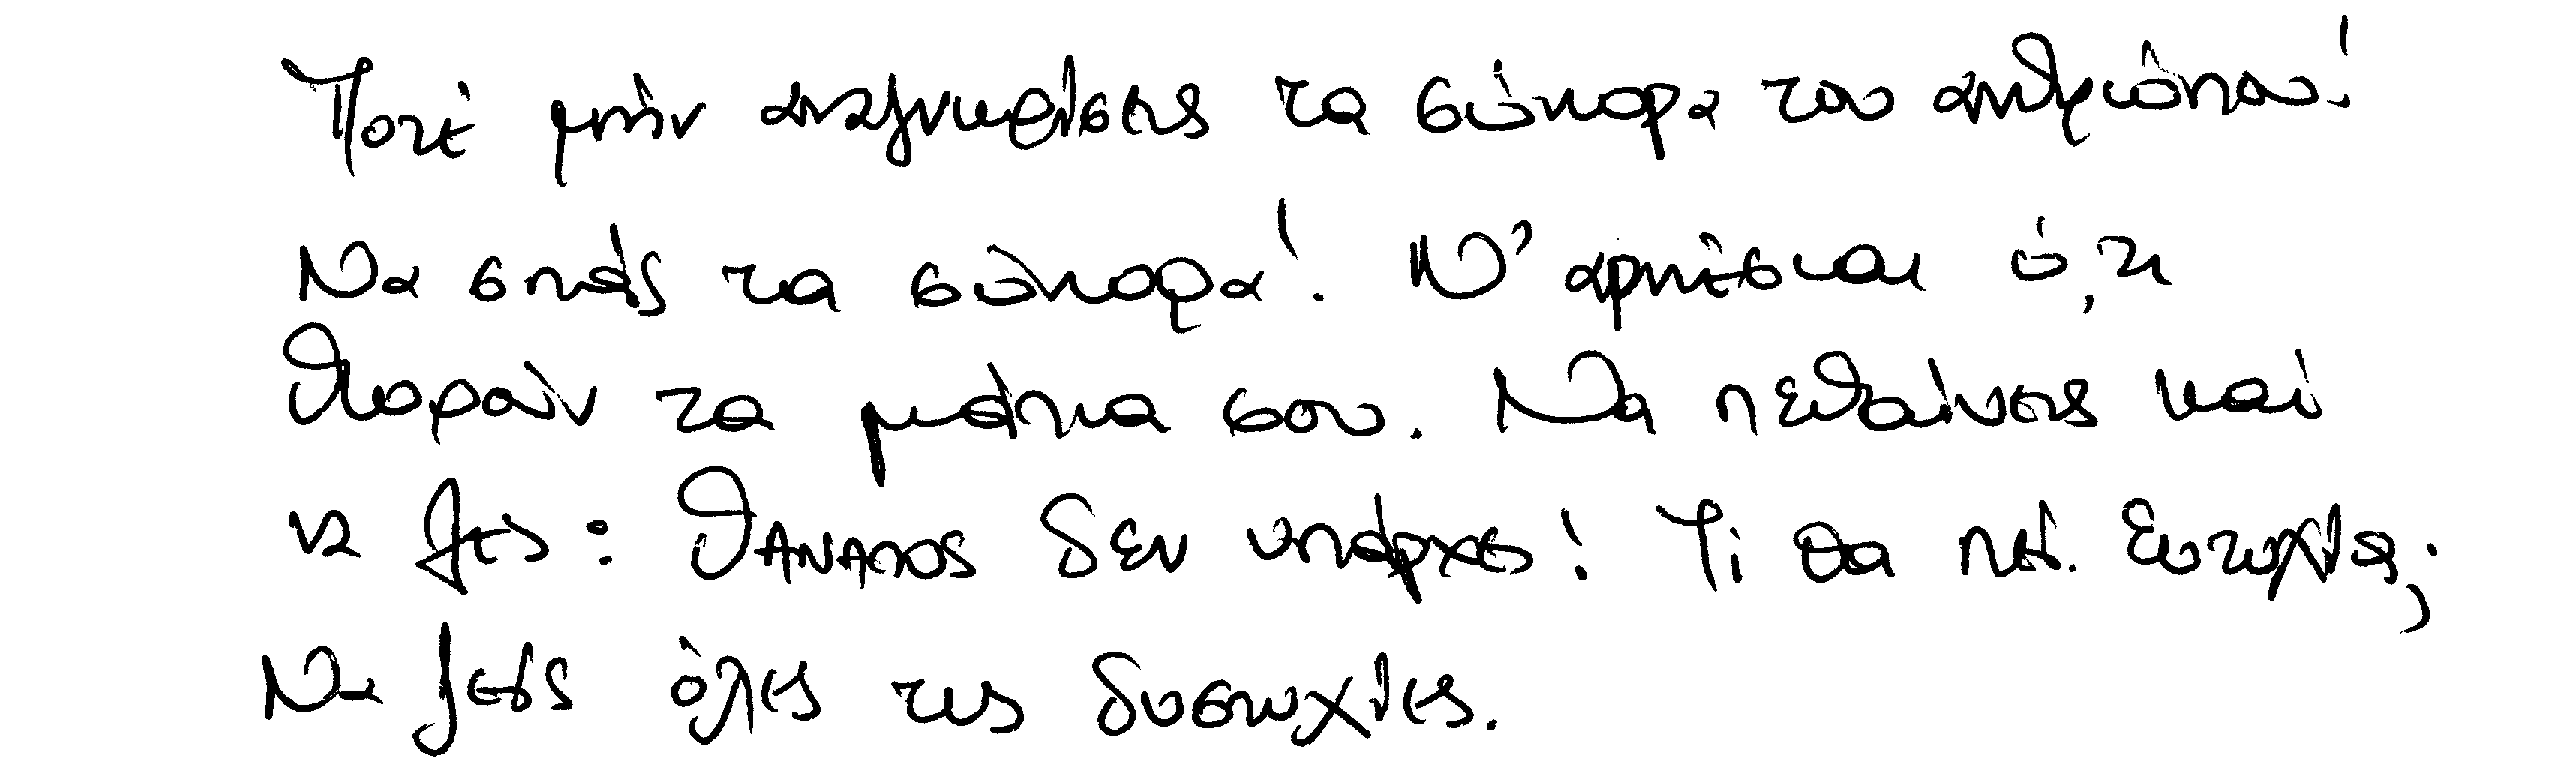 Ποτέ μήν αναγνωρίσεις τα σύνορα του ανθρώπου!
Να σπάς τα σύνορα! Ν' αρνιέσαι ό,τι
θωρούν τα μάτια σου. Να πεθαίνεις καί
να λες: ΘΑΝΑΤΟΣ δεν υπάρχει! Τι θα πεί ευτυχία;
Να ζεις όλες τις δυστυχίες.